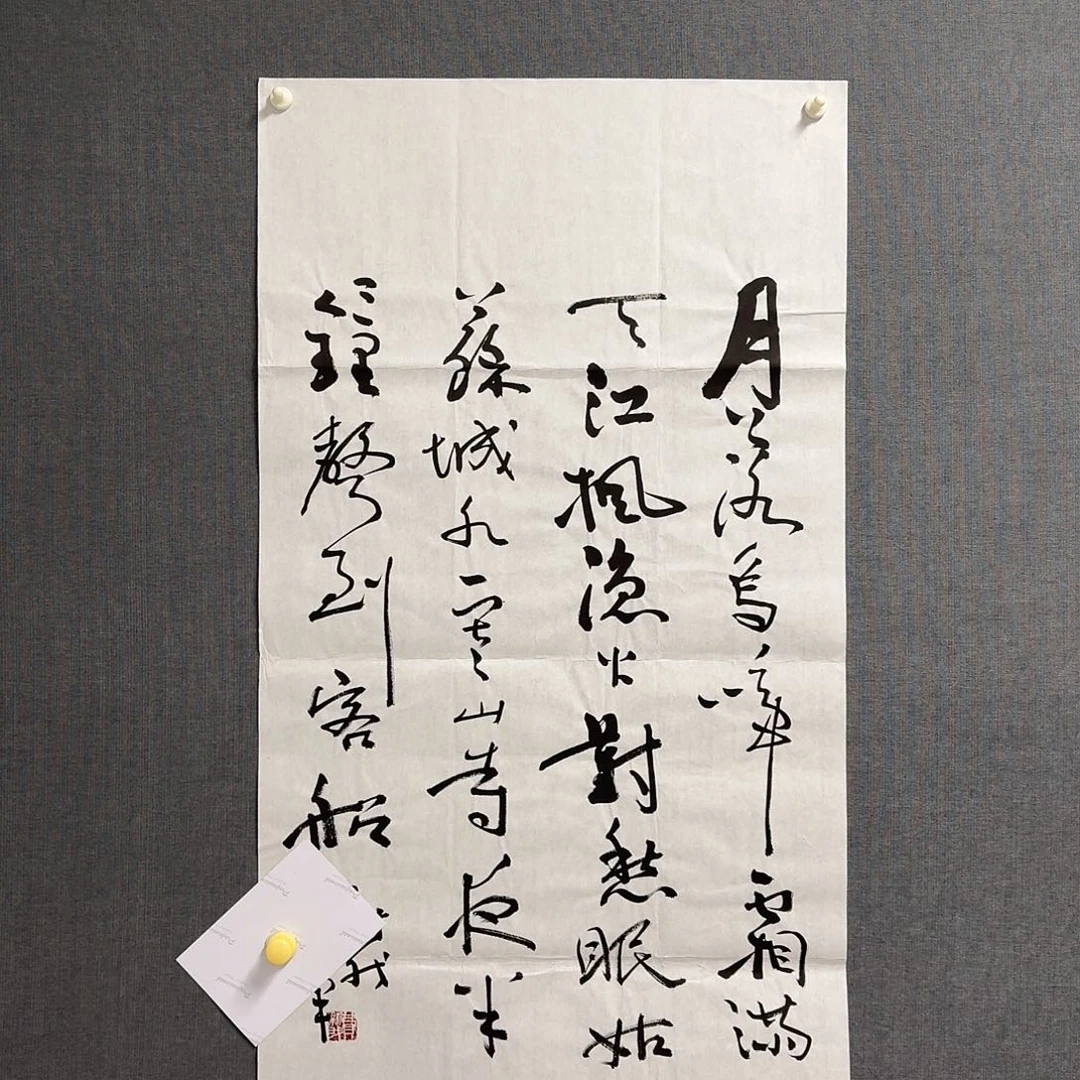 月落烏啼霜滿
天江楓漁火對愁眠姑
蘇城外寒山寺夜半
鐘聲到客船